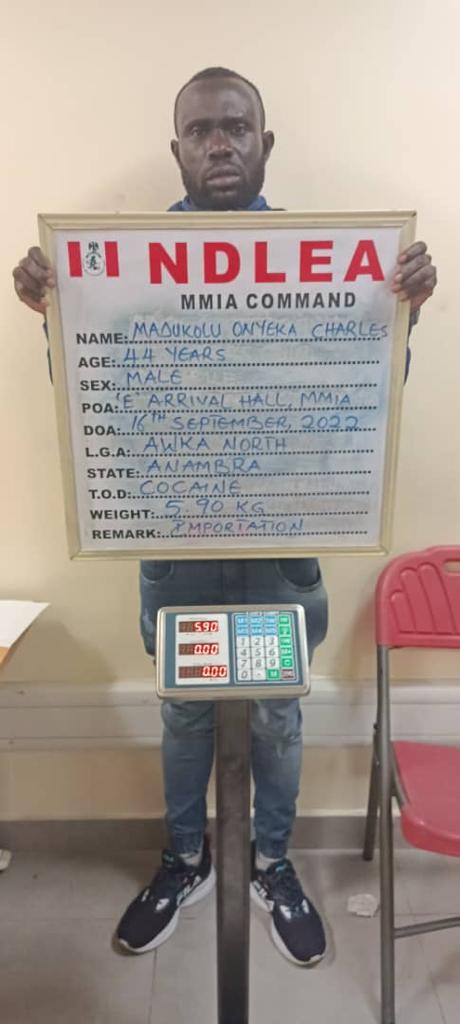 NDLEA
MMIA COMMAND
NAME: MADUKOLU ONYEKA CHARLES
AGE: 44 YEARS
SEX: MALE
POA: 'E' ARRIVAL HALL, MMIA
DOA: 16TH SEPTEMBER, 2022
L.G.A: AWKA NORTH
STATE: ANAMBRA
T.O.D: COCAINE
WEIGHT: 5.90 KG
REMARK: IMPORTATION
5.90
0.00
0.00
1 2 3
4 5 6
7 8 9
0 . M
FILA